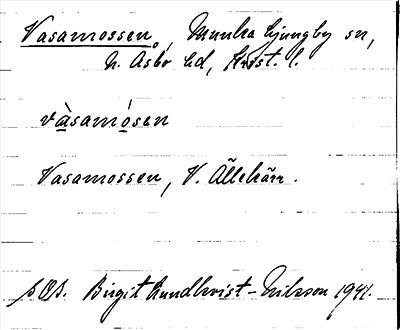 Vasamossen, Munka Ljungby sn,
N. Åsbo hd, Krist. l.
vàsamósen
Vasamossen, V. Ällekärr.
Birgit Lundkvist-Nilsson 1941.